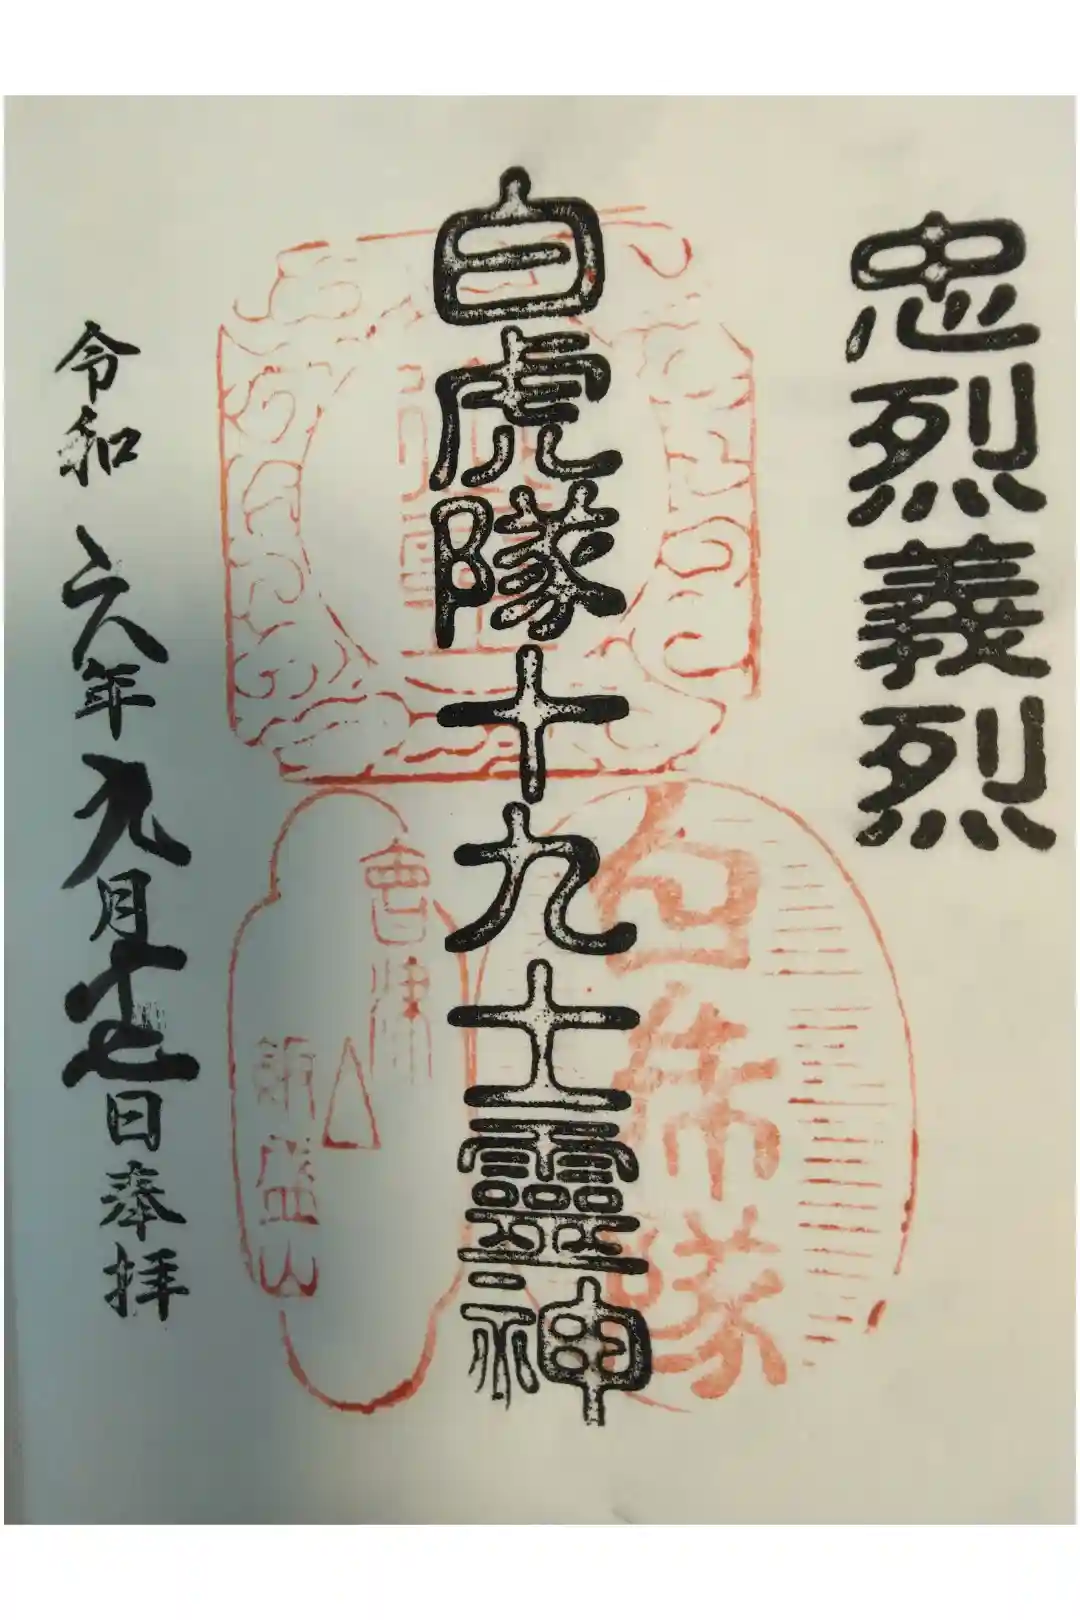 忠烈義烈
白虎隊十九士靈神
白虎隊
會津
飯盛山
令和六年九月十七日奉拝